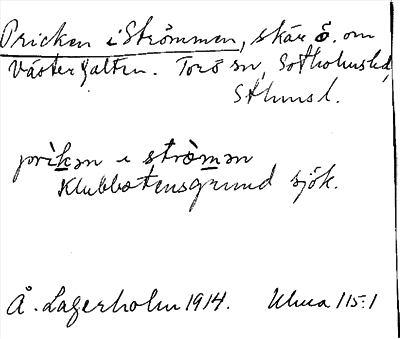 Pricken i Strömmen, skär ö. om
Västergalten. Torö sn, Sotholms hd,
Sthms l.
prìkan i strö̀man
Klubbstensgrund sjök.
Å. Lagerholm 1914. Ulma 115:1